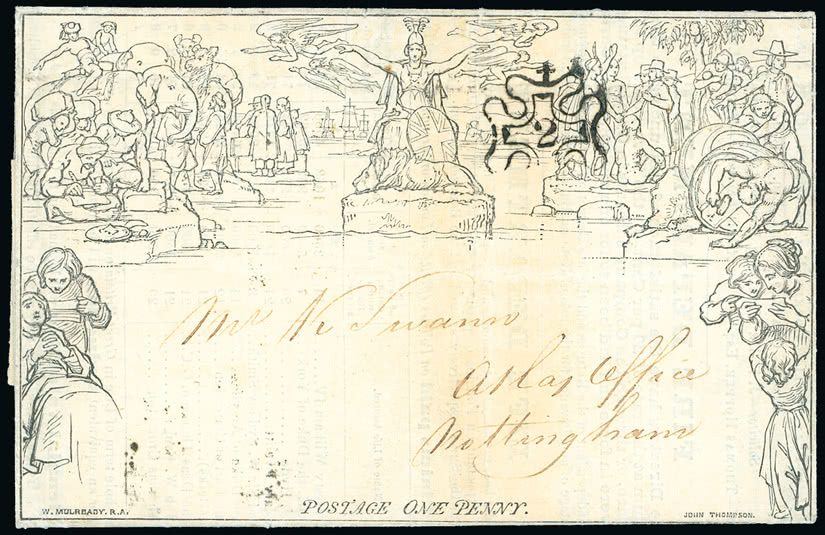 2
Mr W Swann
Atlas Office
Nottingham
POSTAGE ONE PENNY.
W. MULREADY. R.A.
JOHN THOMPSON.